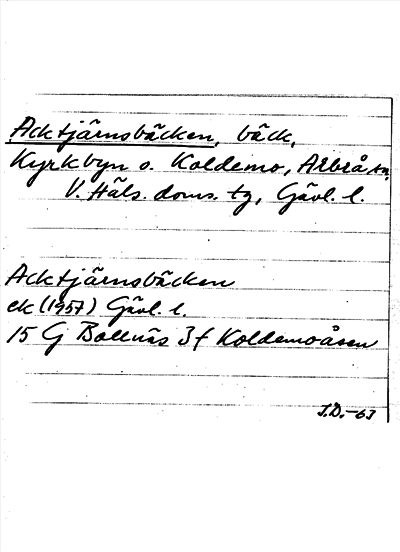 Acktjärnsbäcken, bäck,
Kyrkbyn o. Koldemo, Arbrå sn,
V. Häls. doms. tg, Gävl. l.
Acktjärnsbäcken
ek (1957) Gävl. l.
15 G Bollnäs 3f Koldemoåsen
J.D.-63